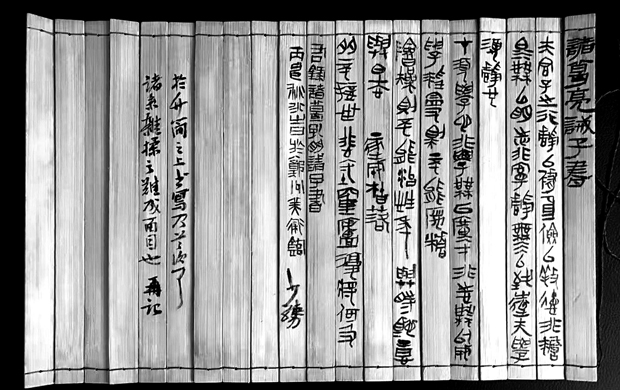 諸葛亮誡子書
夫君子之行靜以修身儉以養德非澹
泊無以明志非寧靜無以致遠夫學
須靜也
才須學也非學無以廣才非志無以成
學淫慢則不能勵精
險躁則不能治性年與時馳意
與日去 遂成枯落
多不接世悲守窮廬將復何及
右錄諸葛孔明誡子書
秋 於鄭州美術館
於 簡之上書寫乃首次
諸 雜 之難成面目也 再記